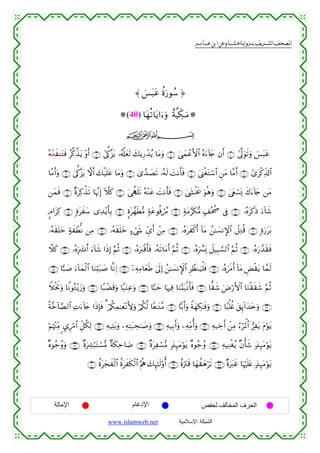 المصحف الشريف برواية هشام عن ابن عامر
﴿ سُورَةُ عَبَسَ ﴾
مَكِّيَّةٌ وَءَايَاتُهَا (40)
بِسۡمِ ٱللَّهِ ٱلرَّحۡمَٰنِ ٱلرَّحِيمِ
عَبَسَ وَتَوَلَّىٰٓ ۝ أَن جَآءَهُ ٱلۡأَعۡمَىٰ ۝ وَمَا يُدۡرِيكَ لَعَلَّهُۥ يَزَّكَّىٰٓ ۝ أَوۡ يَذَّكَّرُ فَتَنفَعُهُ
ٱلذِّكۡرَىٰٓ ۝ أَمَّا مَنِ ٱسۡتَغۡنَىٰ ۝ فَأَنتَ لَهُۥ تَصَدَّىٰ ۝ وَمَا عَلَيۡكَ أَلَّا يَزَّكَّىٰ ۝ وَأَمَّا
مَن جَآءَكَ يَسۡعَىٰ ۝ وَهُوَ يَخۡشَىٰ ۝ فَأَنتَ عَنۡهُ تَلَهَّىٰ ۝ كَلَّآ إِنَّهَا تَذۡكِرَةٞ ۝ فَمَن
شَآءَ ذَكَرَهُۥ ۝ فِي صُحُفٖ مُّكَرَّمَةٖ ۝ مَّرۡفُوعَةٖ مُّطَهَّرَةِۭ ۝ بِأَيۡدِي سَفَرَةٖ ۝ كِرَامِۭ
بَرَرَةٖ ۝ قُتِلَ ٱلۡإِنسَٰنُ مَآ أَكۡفَرَهُۥ ۝ مِنۡ أَيِّ شَيۡءٍ خَلَقَهُۥ ۝ مِن نُّطۡفَةٍ خَلَقَهُۥ
فَقَدَّرَهُۥ ۝ ثُمَّ ٱلسَّبِيلَ يَسَّرَهُۥ ۝ ثُمَّ أَمَاتَهُۥ فَأَقۡبَرَهُۥ ۝ ثُمَّ إِذَا شَآءَ أَنشَرَهُۥ ۝ كَلَّا
لَمَّا يَقۡضِ مَآ أَمَرَهُۥ ۝ فَلۡيَنظُرِ ٱلۡإِنسَٰنُ إِلَىٰ طَعَامِهِۦٓ ۝ إِنَّا صَبَبۡنَا ٱلۡمَآءَ صَبّٗا ۝
ثُمَّ شَقَقۡنَا ٱلۡأَرۡضَ شَقّٗا ۝ فَأَنۢبَتۡنَا فِيهَا حَبّٗا ۝ وَعِنَبٗا وَقَضۡبٗا ۝ وَزَيۡتُونٗا وَنَخۡلٗا ۝
وَحَدَآئِقَ غُلۡبٗا ۝ وَفَٰكِهَةٗ وَأَبّٗا ۝ مَّتَٰعٗا لَّكُمۡ وَلِأَنۡعَٰمِكُمۡ ۝ فَإِذَا جَآءَتِ ٱلصَّآخَّةُ ۝
يَوۡمَ يَفِرُّ ٱلۡمَرۡءُ مِنۡ أَخِيهِ ۝ وَأُمِّهِۦ وَأَبِيهِ ۝ وَصَٰحِبَتِهِۦ وَبَنِيهِ ۝ لِكُلِّ ٱمۡرِيٕٖ مِّنۡهُمۡ
يَوۡمَئِذٖ شَأۡنٞ يُغۡنِيهِ ۝ وُجُوهٞ يَوۡمَئِذٖ مُّسۡفِرَةٞ ۝ ضَاحِكَةٞ مُّسۡتَبۡشِرَةٞ ۝ وَوُجُوهٞ
يَوۡمَئِذٍ عَلَيۡهَا غَبَرَةٞ ۝ تَرۡهَقُهَا قَتَرَةٌ ۝ أُوْلَٰٓئِكَ هُمُ ٱلۡكَفَرَةُ ٱلۡفَجَرَةُ ۝
الحرف المخالف لحفص الإدغام الإمالة
www.islamweb.net الشبكة الإسلامية